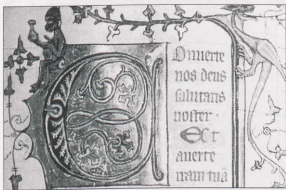 Onuerte
nos deus
salutaris
noster ·
Et
auerte
iram tuā